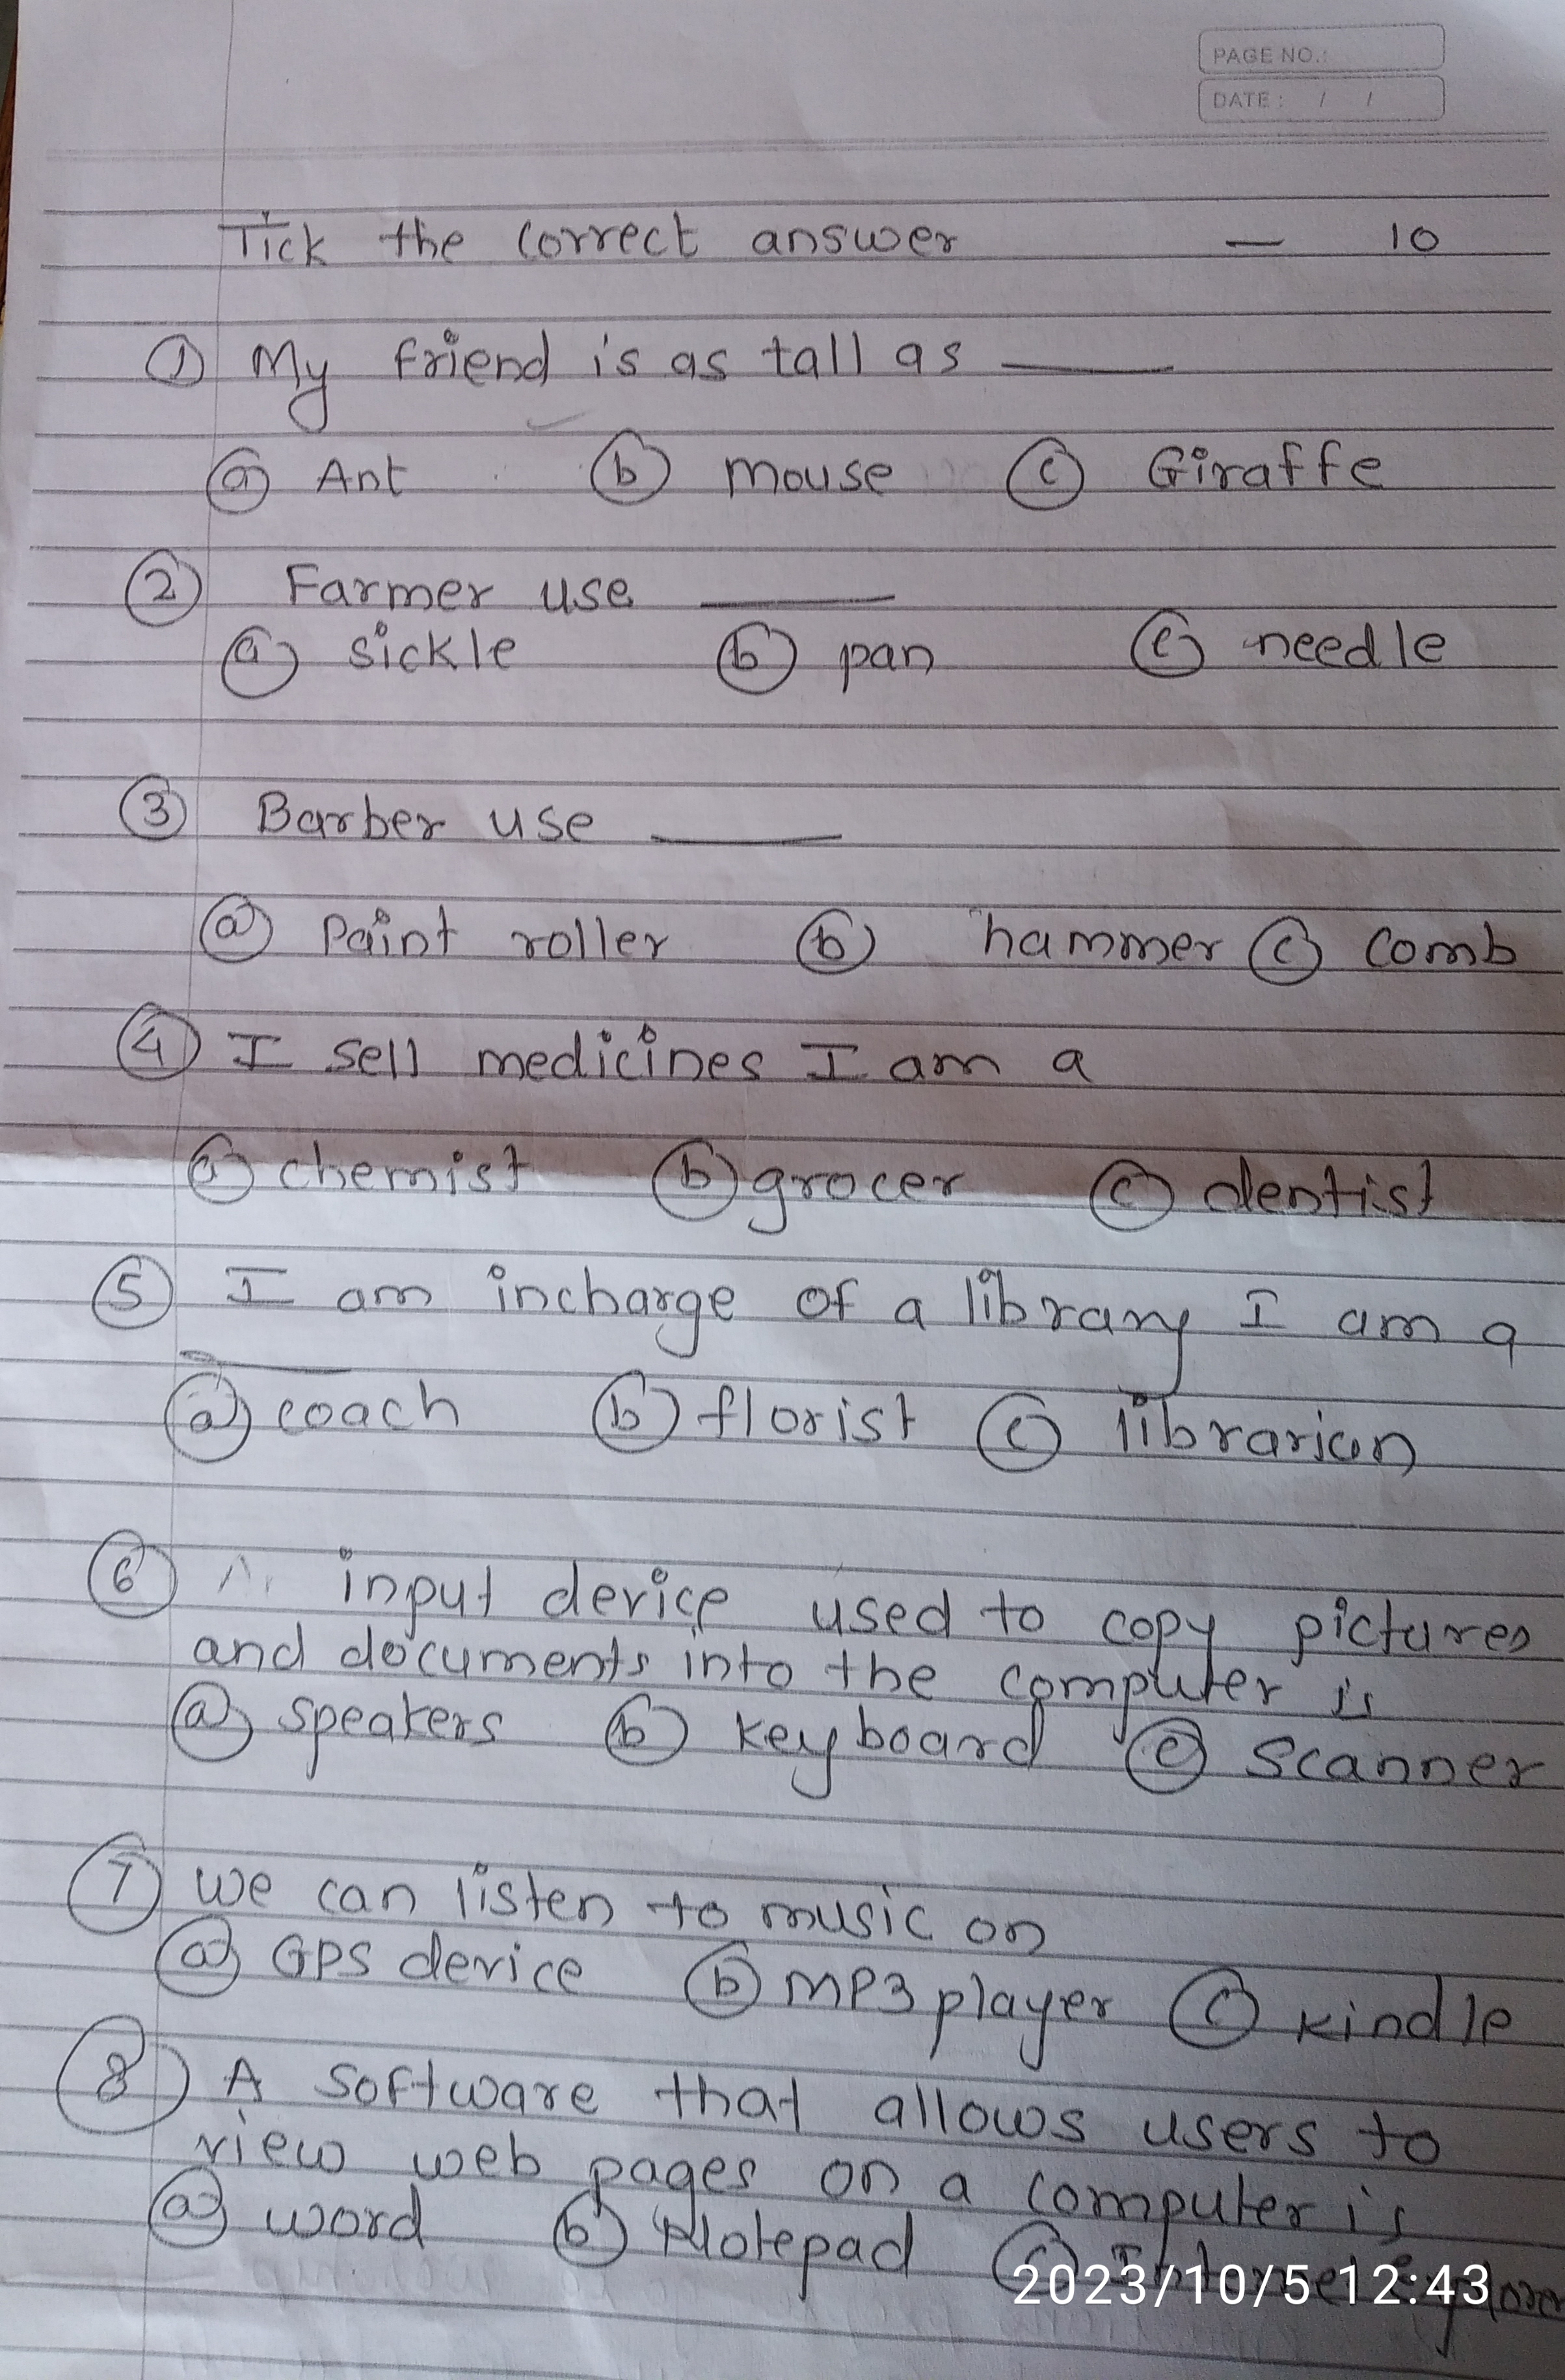 PAGE NO.:
DATE : / /
Tick the correct answer — 10
① My friend is as tall as ____
ⓐ Ant ⓑ mouse ⓒ Giraffe
② Farmer use ____
ⓐ sickle ⓑ pan ⓒ needle
③ Barber use ____
ⓐ Paint roller ⓑ hammer ⓒ comb
④ I sell medicines I am a
ⓐ chemist ⓑ grocer ⓒ dentist
⑤ I am incharge of a library I am a
____
ⓐ coach ⓑ florist ⓒ librarian
⑥ input device used to copy pictures
and documents into the computer is
ⓐ speakers ⓑ keyboard ⓒ Scanner
⑦ we can listen to music on
ⓐ GPS device ⓑ MP3 player ⓒ kindle
⑧ A software that allows users to
view web pages on a computer is
ⓐ word ⓑ Notepad ⓒ Internet Explorer
2023/10/5 12:43